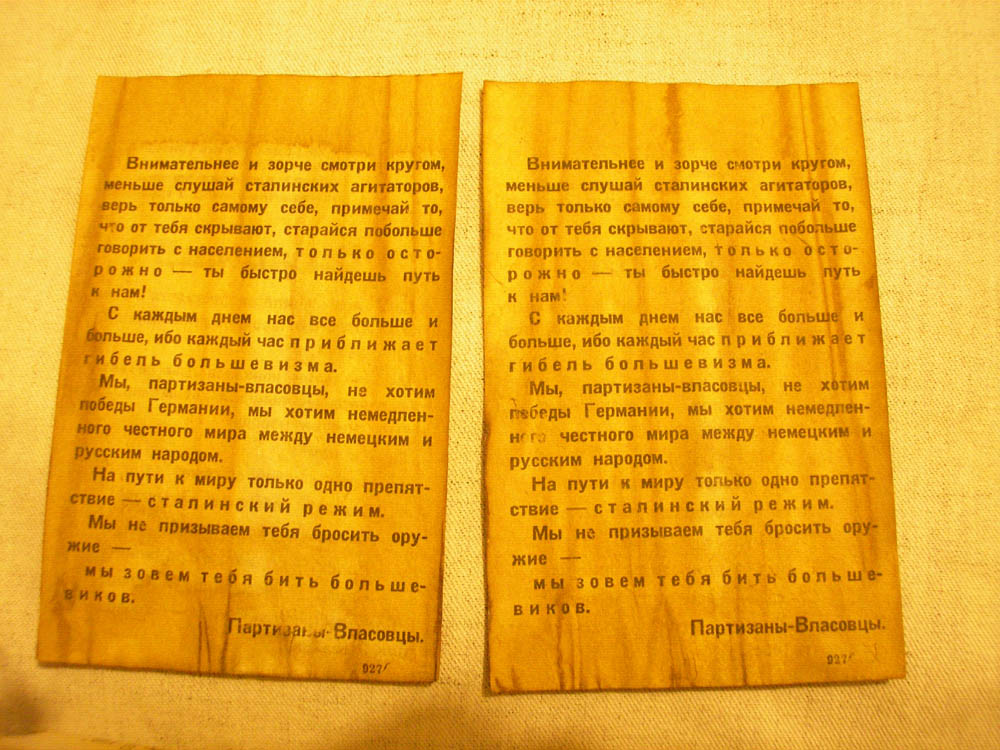 Внимательнее и зорче смотри кругом,
меньше слушай сталинских агитаторов,
верь только самому себе, примечай то,
что от тебя скрывают, старайся побольше
говорить с населением, только осто-
рожно — ты быстро найдешь путь
к нам!
С каждым днем нас все больше и
больше, ибо каждый час приближает
гибель большевизма.
Мы, партизаны-власовцы, не хотим
победы Германии, мы хотим немедлен-
ного честного мира между немецким и
русским народом.
На пути к миру только одно препят-
ствие — сталинский режим.
Мы не призываем тебя бросить ору-
жие —
мы зовем тебя бить больше-
виков.
Партизаны-Власовцы.
Внимательнее и зорче смотри кругом,
меньше слушай сталинских агитаторов,
верь только самому себе, примечай то,
что от тебя скрывают, старайся побольше
говорить с населением, только осто-
рожно — ты быстро найдешь путь
к нам!
С каждым днем нас все больше и
больше, ибо каждый час приближает
гибель большевизма.
Мы, партизаны-власовцы, не хотим
победы Германии, мы хотим немедлен-
ного честного мира между немецким и
русским народом.
На пути к миру только одно препят-
ствие — сталинский режим.
Мы не призываем тебя бросить ору-
жие —
мы зовем тебя бить больше-
виков.
Партизаны-Власовцы.